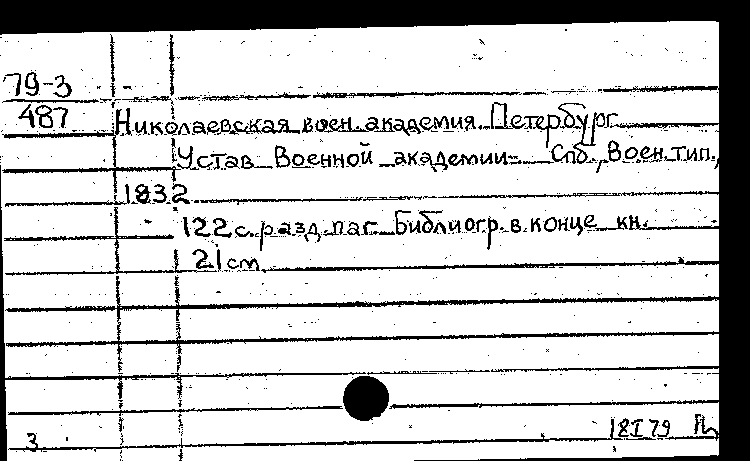 79-3
487
Николаевская воен. академия. Петербург
Устав Военной академии. - Спб., Воен. тип.,
1832
122 с. разд. паг. Библиогр. в конце кн.
21 см.
3.
18 I 79